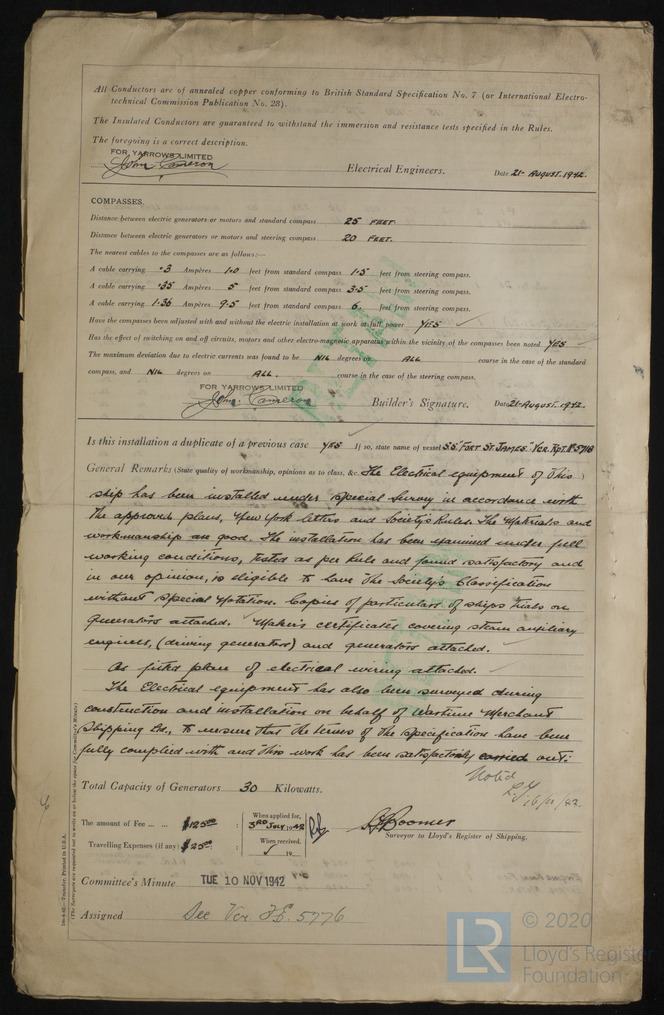 All Conductors are of annealed copper conforming to British Standard Specification No. 7 (or International Electro-
technical Commission Publication No. 28).
The Insulated Conductors are guaranteed to withstand the immersion and resistance tests specified in the Rules.
The foregoing is a correct description.
FOR YARROWS LIMITED
John Cameron Electrical Engineers. Date 21- August. 1942.
COMPASSES.
Distance between electric generators or motors and standard compass 25 FEET.
Distance between electric generators or motors and steering compass 20 FEET.
The nearest cables to the compasses are as follows:—
A cable carrying .3 Ampères 1.0 feet from standard compass 1.5 feet from steering compass.
A cable carrying .35 Ampères 5 feet from standard compass 3.5 feet from steering compass.
A cable carrying 1.36 Ampères 9.5 feet from standard compass 6. feet from steering compass.
Have the compasses been adjusted with and without the electric installation at work at full power YES
Has the effect of switching on and off circuits, motors and other electro-magnetic apparatus within the vicinity of the compasses been noted YES
The maximum deviation due to electric currents was found to be NIL degrees on ALL course in the case of the standard
compass, and NIL degrees on ALL. course in the case of the steering compass.
FOR YARROWS LIMITED
John Cameron Builder's Signature. Date 21-August. 1942.
Is this installation a duplicate of a previous case YES If so, state name of vessel S.S. Fort St. James. Vcr. Rpt. No 5718
General Remarks (State quality of workmanship, opinions as to class, &c. The Electrical equipment of this
ship has been installed under special survey in accordance with
the approved plans, New York letters and Society's Rules. The Materials and
workmanship are good. The installation has been examined under full
working conditions, tested as per Rule and found satisfactory and
in our opinion, is eligible to have the Society's Classification
without special Notation. Copies of particulars of ships trials on
generators attached. Maker's certificates covering steam auxiliary
engines, (driving generators) and generators attached.
As fitted plans of electrical wiring attached.
The Electrical equipment has also been surveyed during
construction and installation on behalf of Wartime Merchant
Shipping Ltd., to ensure that the terms of the specification have been
fully complied with and this work has been satisfactorily carried out.
Noted
16/11/42.
Total Capacity of Generators 30 Kilowatts.
The amount of Fee ... ... $125.00 : When applied for, 3RD July 1942
Travelling Expenses (if any) $25.00 : When received, 19
Boomer
Surveyor to Lloyd's Register of Shipping.
Committee's Minute TUE 10 NOV 1942
Assigned See Vcr F.E. 5776
Transfer. Printed in U.S.A.
(The Surveyors are requested not to write on or below the space for Committee's Minute.)
LR © 2020
Lloyd's Register
Foundation